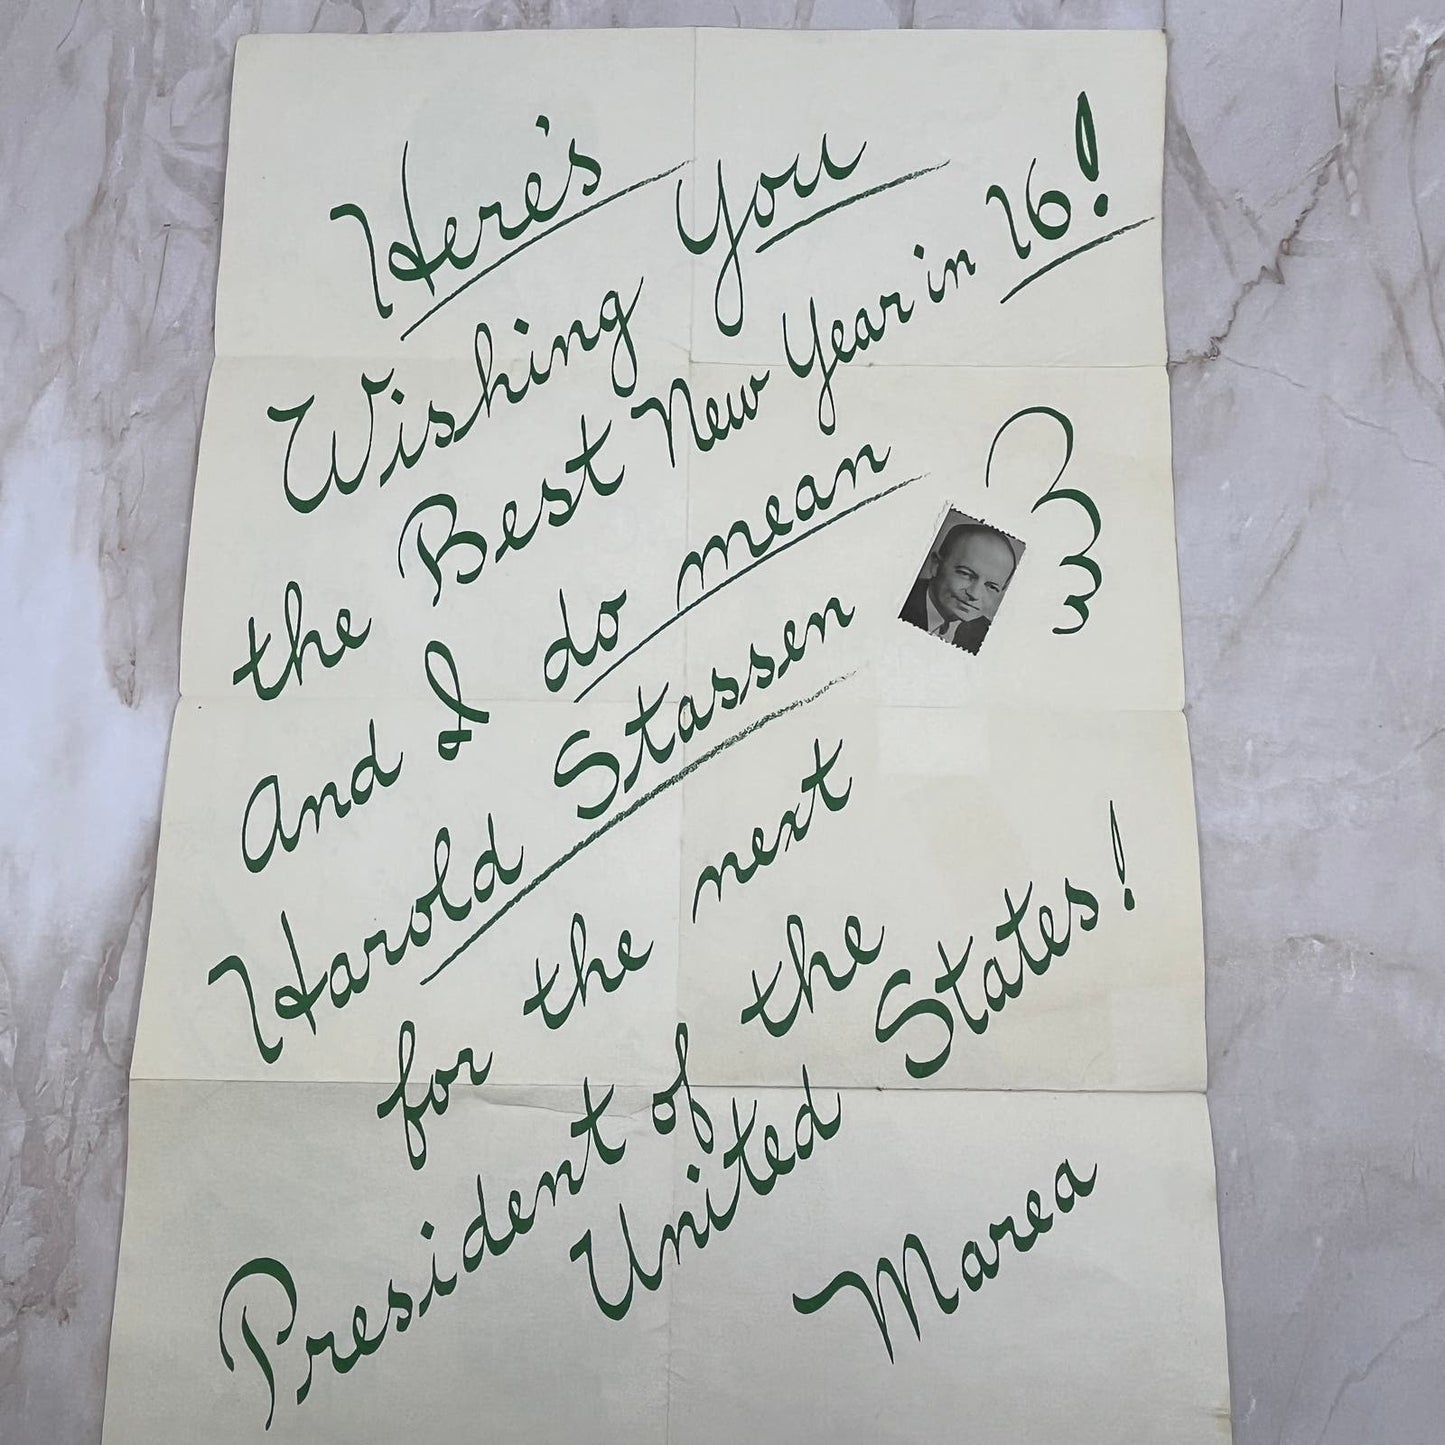 Here's You
Wishing
the Best New Year in 16!
And I do mean
Harold Stassen
for the next
President of the
United States!
Marea